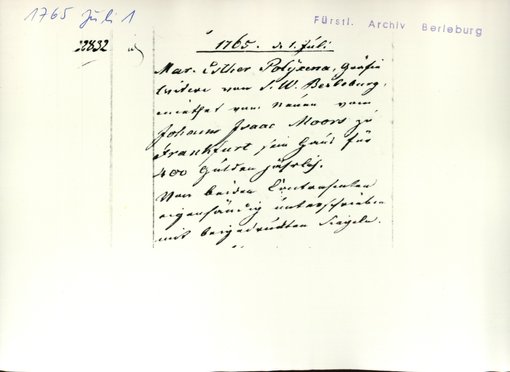 1765 Juli 1
Fürstl. Archiv Berleburg
22832
1765. d 1. Juli
Mar. Esther Polyxena, Gräfin
von S. W. Berleburg,
miethet von Neuem vom
Johann Isaac Moors zu
Frankfurt sein Haus für
400 Gulden jährlich.
Von beiden Contrahenten
eigenhändig unterschrieben
mit beigedruckten Siegeln.